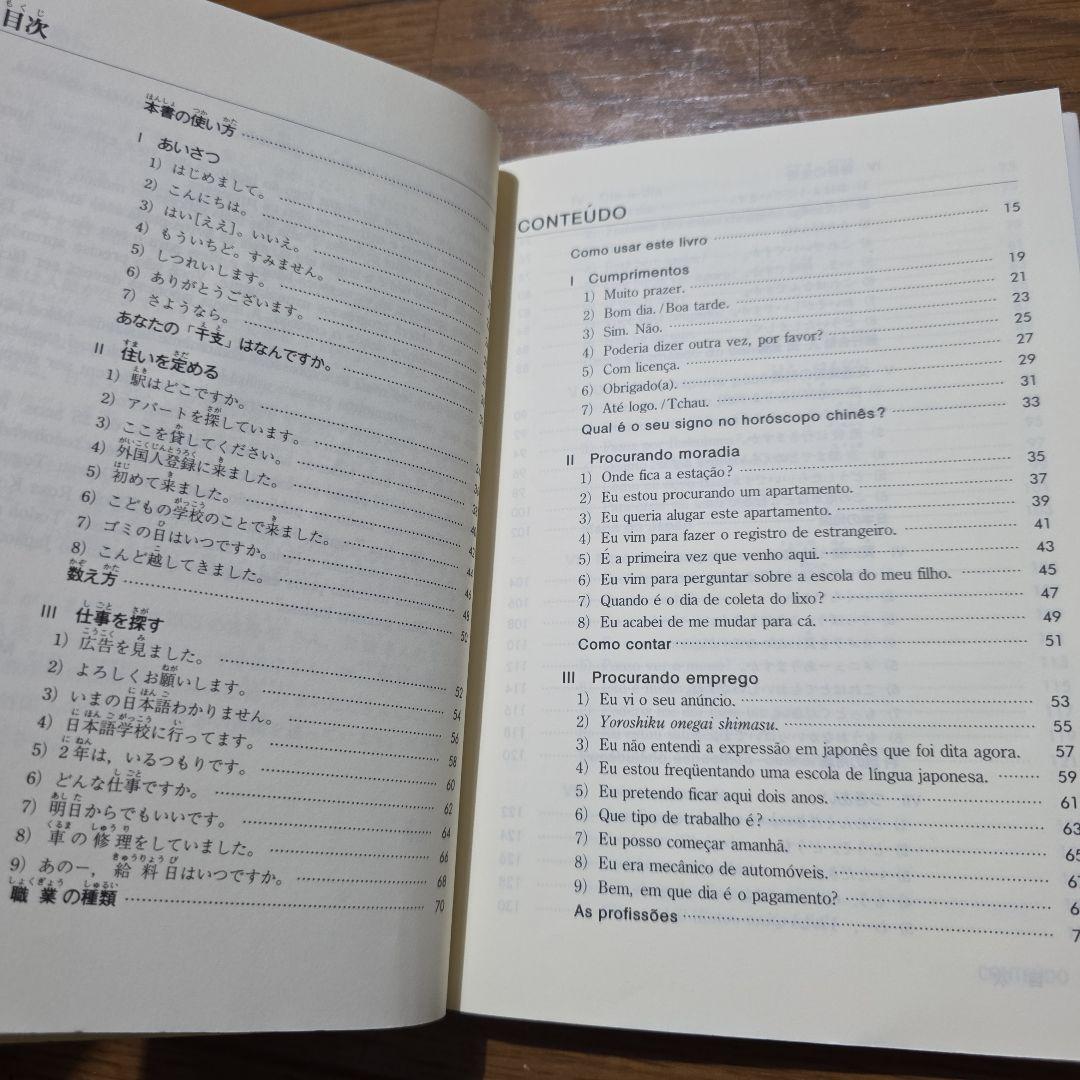 目次
本書の使い方
I あいさつ
1) はじめまして。
2) こんにちは。
3) はい[ええ]。いいえ。
4) もういちど。すみません。
5) しつれいします。
6) ありがとうございます。
7) さようなら。
あなたの「干支」はなんですか。
II 住いを定める
1) 駅はどこですか。
2) アパートを探しています。
3) ここを貸してください。
4) 外国人登録に来ました。
5) 初めて来ました。
6) こどもの学校のことで来ました。
7) ゴミの日はいつですか。 44
8) こんど越してきました。 46
数え方 50
III 仕事を探す
1) 広告を見ました。 52
2) よろしくお願いします。 54
3) いまの日本語わかりません。 56
4) 日本語学校に行ってます。 58
5) 2年は,いるつもりです。 60
6) どんな仕事ですか。 62
7) 明日からでもいいです。 64
8) 車の修理をしていました。 66
9) あのー,給料日はいつですか。 68
職業の種類 70
CONTEÚDO
Como usar este livro 15
I Cumprimentos
1) Muito prazer. 19
2) Bom dia./Boa tarde. 21
3) Sim. Não. 23
4) Poderia dizer outra vez, por favor? 25
5) Com licença. 27
6) Obrigado(a). 29
7) Até logo./Tchau. 31
Qual é o seu signo no horóscopo chinês? 33
II Procurando moradia
1) Onde fica a estação? 35
2) Eu estou procurando um apartamento. 37
3) Eu queria alugar este apartamento. 39
4) Eu vim para fazer o registro de estrangeiro. 41
5) É a primeira vez que venho aqui. 43
6) Eu vim para perguntar sobre a escola do meu filho. 45
7) Quando é o dia de coleta do lixo? 47
8) Eu acabei de me mudar para cá. 49
Como contar 51
III Procurando emprego
1) Eu vi o seu anúncio. 53
2) Yoroshiku onegai shimasu. 55
3) Eu não entendi a expressão em japonês que foi dita agora. 57
4) Eu estou freqüentando uma escola de língua japonesa. 59
5) Eu pretendo ficar aqui dois anos. 61
6) Que tipo de trabalho é? 63
7) Eu posso começar amanhã. 65
8) Eu era mecânico de automóveis.
9) Bem, em que dia é o pagamento?
As profissões